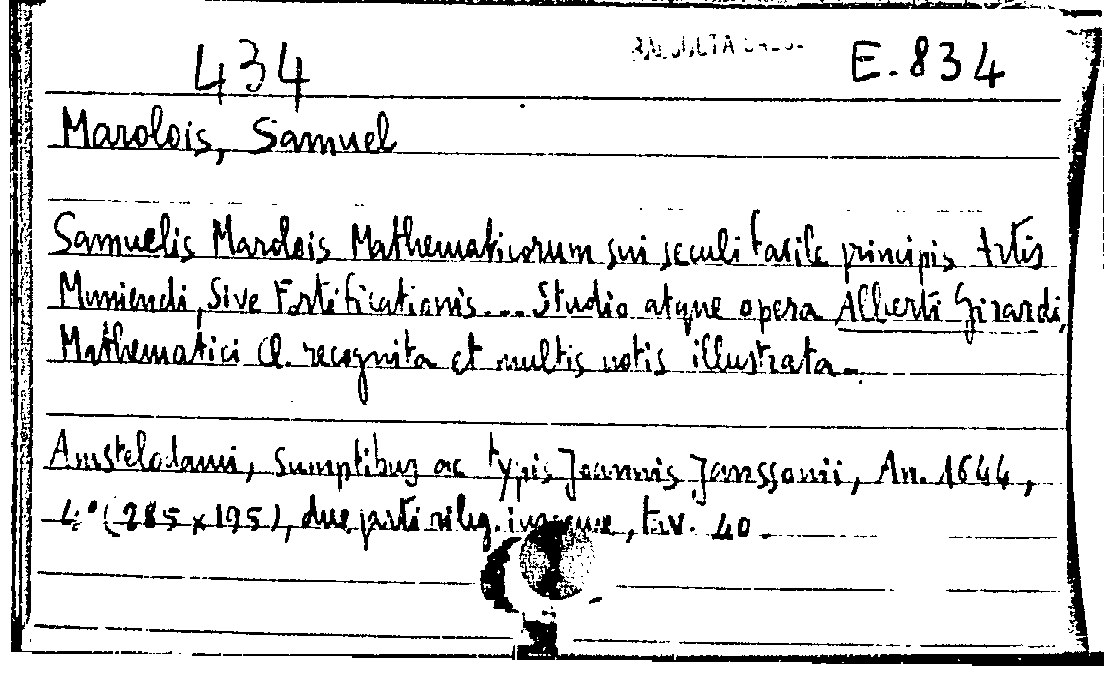 434 E.834
Marolois, Samuel
Samuelis Marolois Mathematicorum sui seculi facile principis Artis
Muniendi, Sive Fortificationis... Studio atque opera Alberti Girardi,
Mathematici Cl. recognita et multis notis illustrata.
Amstelodami, sumptibus ac typis Joannis Janssonii, An. 1644,
4° (285 x 195), due parti rileg. insieme, tav. 40.